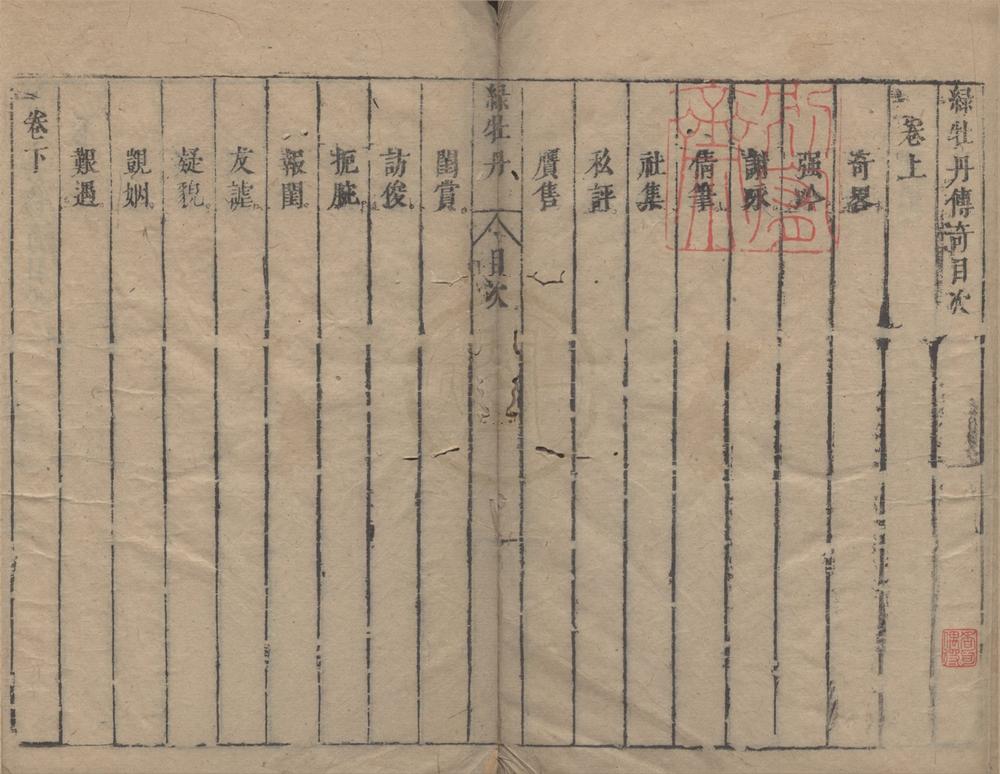 緑牡丹傳奇目次
卷上
奇畧
强吟
謝咏
倩筆
社集
私評
贋售
緑牡丹 目次
閨賞
訪俊
扼腕
報閨
友謔
疑貌
覬姻
艱遇
卷下